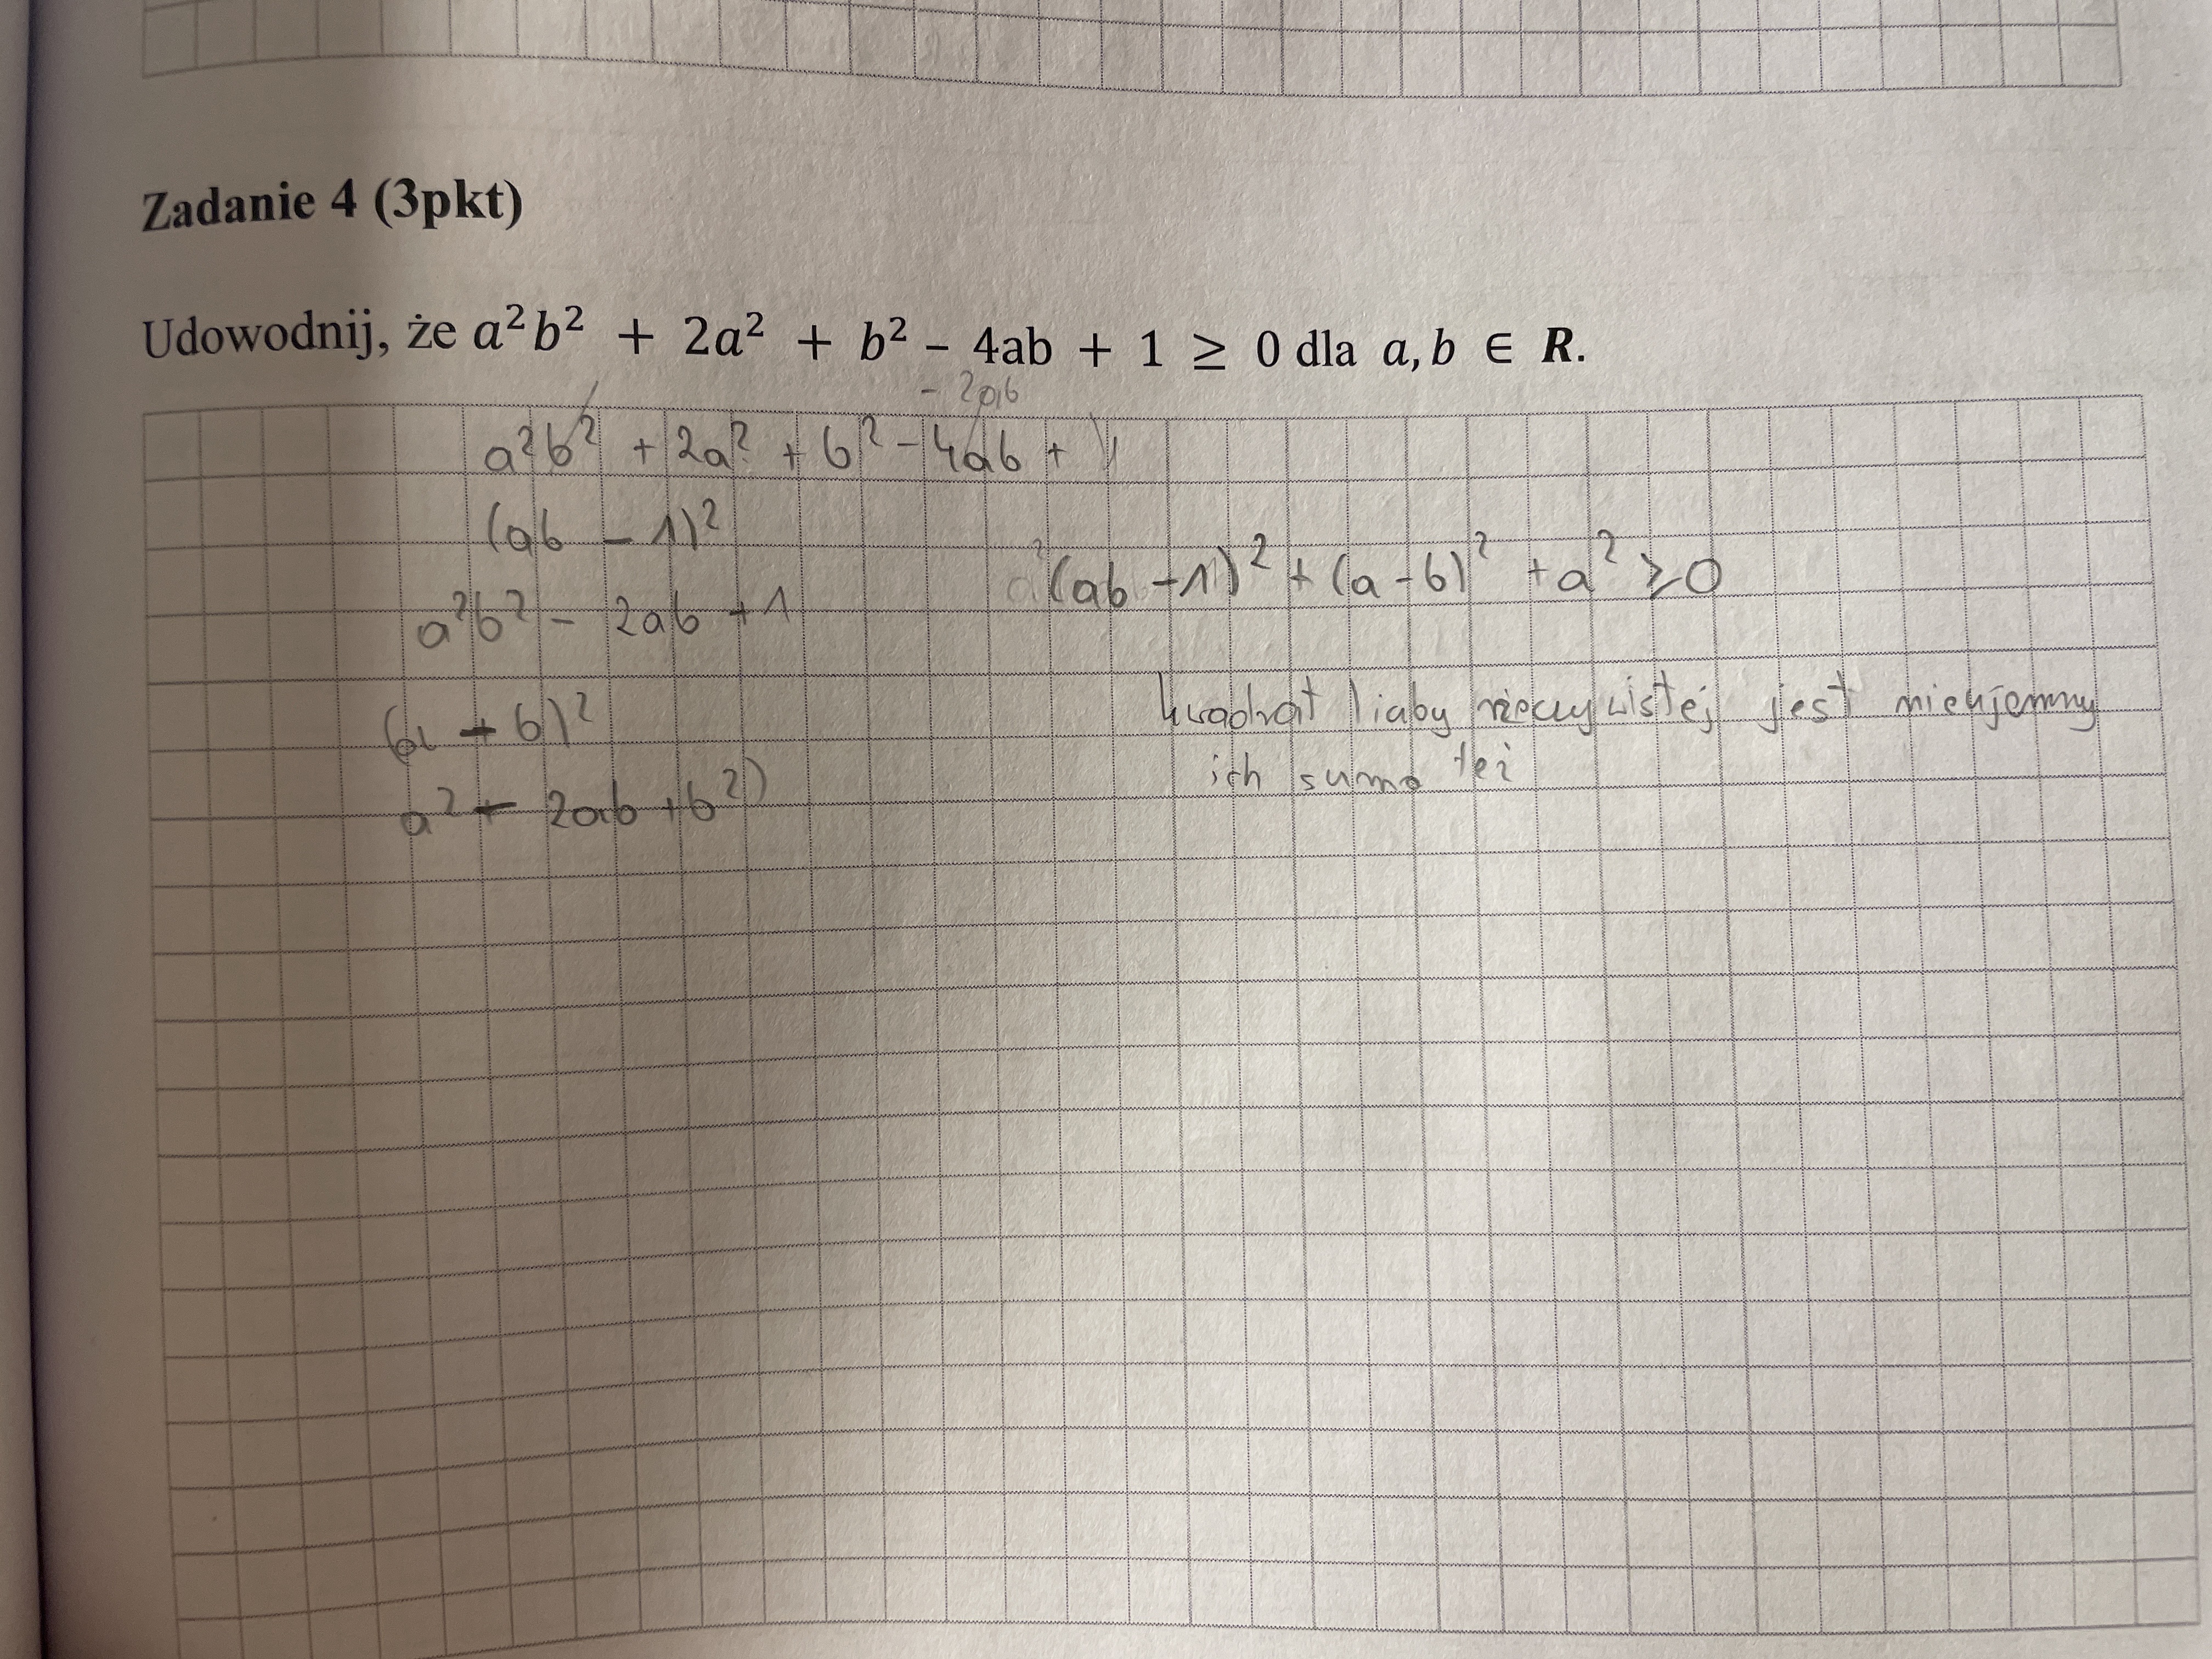 Zadanie 4 (3pkt)
Udowodnij, że a²b² + 2a² + b² – 4ab + 1 ≥ 0 dla a, b ∈ R.
- 2ab
a²b² + 2a² + b² - 4ab + 1
(ab - 1)²
(ab - 1)² + (a - b)² + a² ≥ 0
a²b² - 2ab + 1
kwadrat liczby rzeczywistej jest nieujemny
(a - b)²
ich suma też
a² - 2ab + b²)